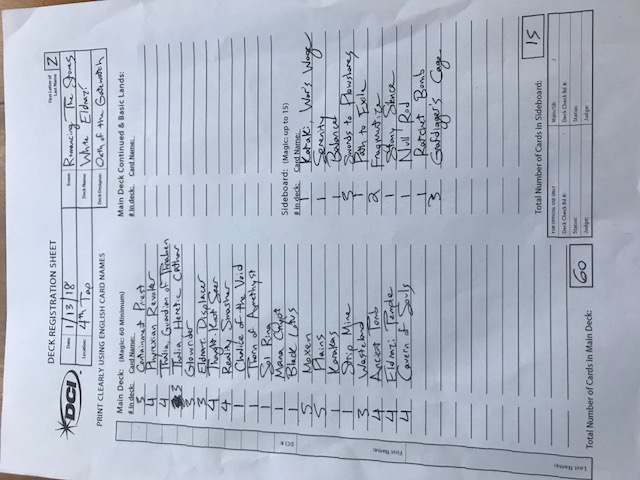 DECK REGISTRATION SHEET
First Letter of Last Name Z
DCI
Date: 1/13/18
Event: Romancing The Stones
Location: 4th Tap
Deck Name: White Eldrazi
Deck Designer: Oath of the Gatewatch
PRINT CLEARLY USING ENGLISH CARD NAMES
Main Deck: (Magic: 60 Minimum)
# in deck: Card Name:
3 Containment Priest
4 Phyrexian Revoker
4 Thalia, Guardian of Thraben
3 Thalia, Heretic Cathar
3 Glowrider
3 Eldrazi Displacer
4 Thought-Knot Seer
4 Reality Smasher
1 Chalice of the Void
1 Thorn of Amethyst
1 Sol Ring
1 Mana Crypt
1 Black Lotus
5 Moxen
5 Plains
1 Karakas
1 Strip Mine
3 Wasteland
4 Ancient Tomb
4 Eldrazi Temple
4 Cavern of Souls
Total Number of Cards in Main Deck: 60
Main Deck Continued & Basic Lands:
# in deck: Card Name:
Sideboard: (Magic: up to 15)
# in deck: Card Name:
1 Kataki, War's Wage
1 Serenity
1 Balance
3 Swords to Plowshares
1 Path to Exile
2 Fragmentize
1 Stony Silence
1 Null Rod
1 Ratchet Bomb
3 Grafdigger's Cage
Total Number of Cards in Sideboard: 15
FOR OFFICIAL USE ONLY
Main/SB: /
Deck Check Rd #:
Deck Check Rd #:
Status:
Status:
Judge:
Judge:
DCI #:
First Name:
Last Name: